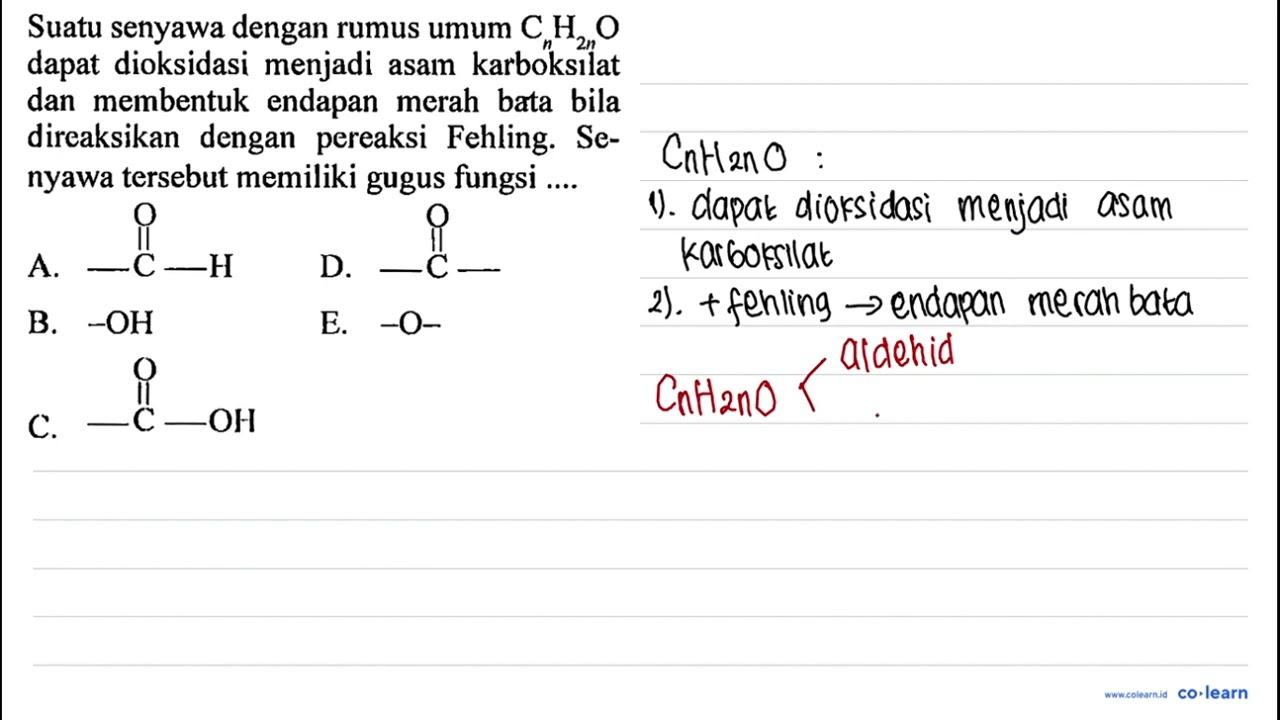 Suatu senyawa dengan rumus umum CnH2nO
dapat dioksidasi menjadi asam karboksilat
dan membentuk endapan merah bata bila
direaksikan dengan pereaksi Fehling. Se-
nyawa tersebut memiliki gugus fungsi ....
O
||
A. —C—H
B. –OH
O
||
C. —C—OH
O
||
D. —C—
E. –O–
CnH2nO :
1). dapat dioksidasi menjadi asam
karboksilat
2). + fehling → endapan merah bata
aldehid
CnH2nO <
www.colearn.id co·learn